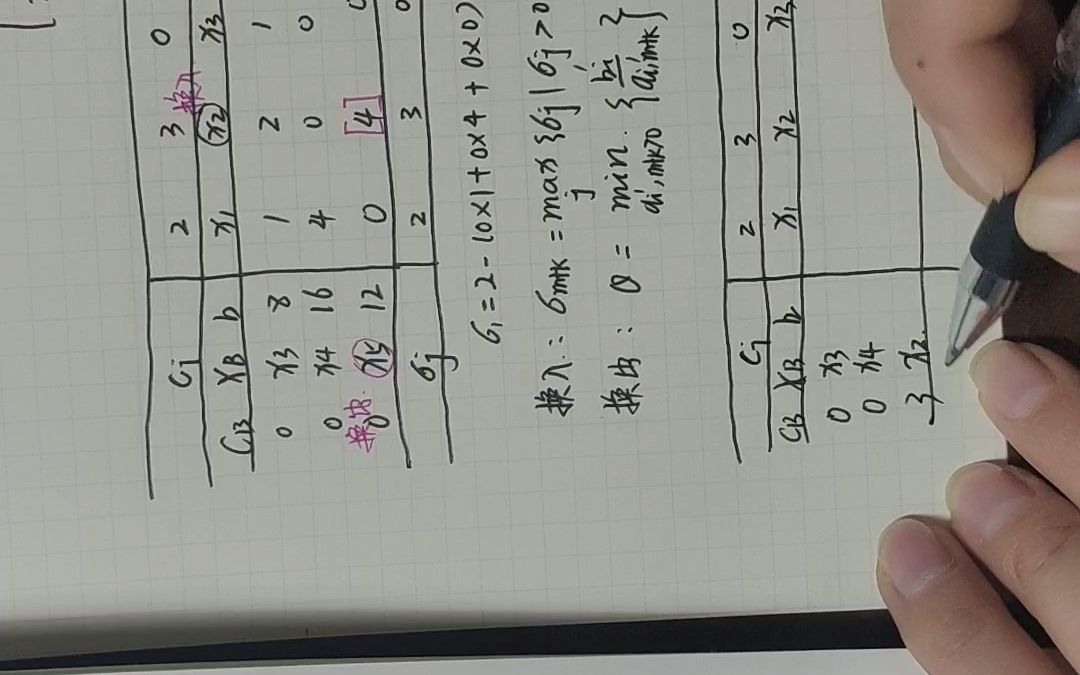 cj 2 3 换入 0
CB XB b x1 x2 x3
0 x3 8 1 2 1
0 x4 16 4 0 0
换出: 0 x5 12 0 [4]
σj 2 3
σ1 = 2 - (0×1 + 0×4 + 0×0)
换入: σm+k = max j {σj | σj > 0
换出: θ = min ai,m+k>0 { bi / ai,m+k }
cj 2 3 0
CB XB b x1 x2 x3
0 x3
0 x4
3 x2